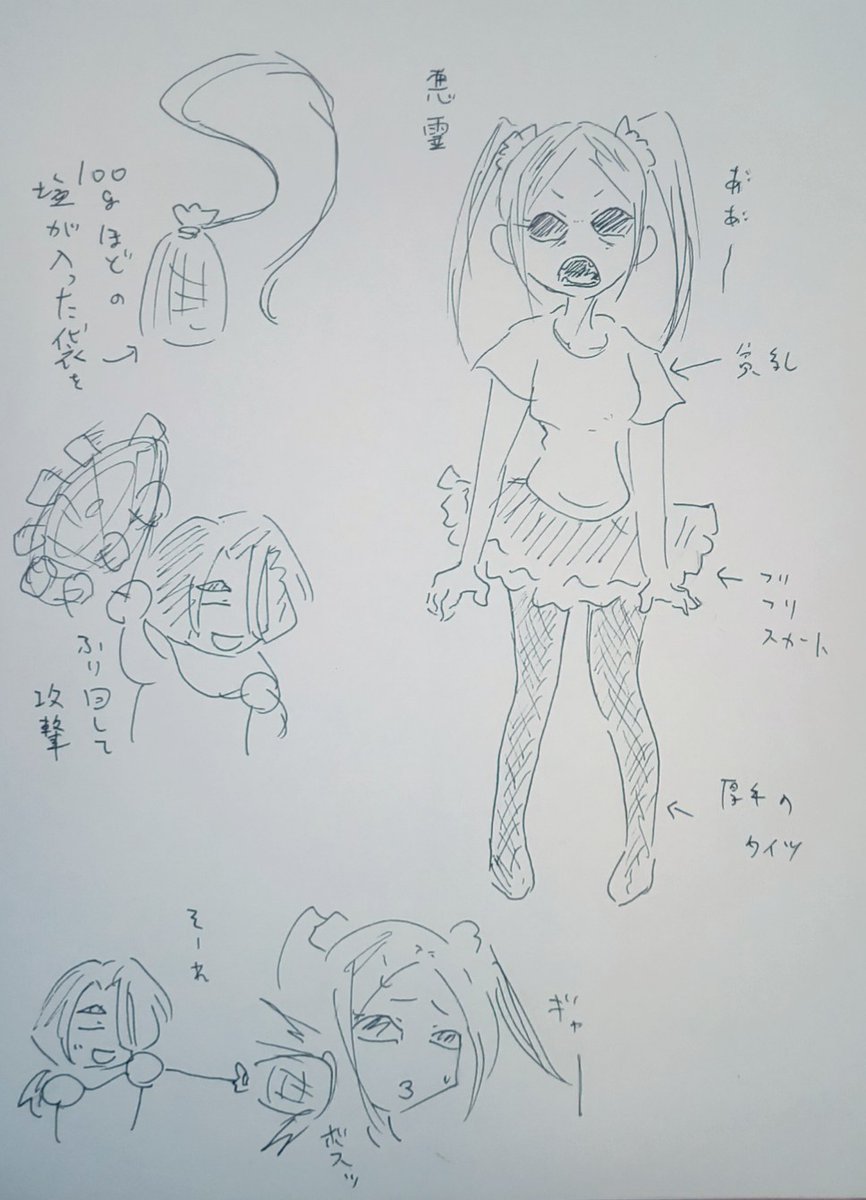 悪霊
あ゛あ゛ー
貧乳
フリ
フリ
スカート
厚手の
タイツ
100gほどの
塩が入った袋を
ふり回して
攻撃
そーれ
ボスッ
ギャー